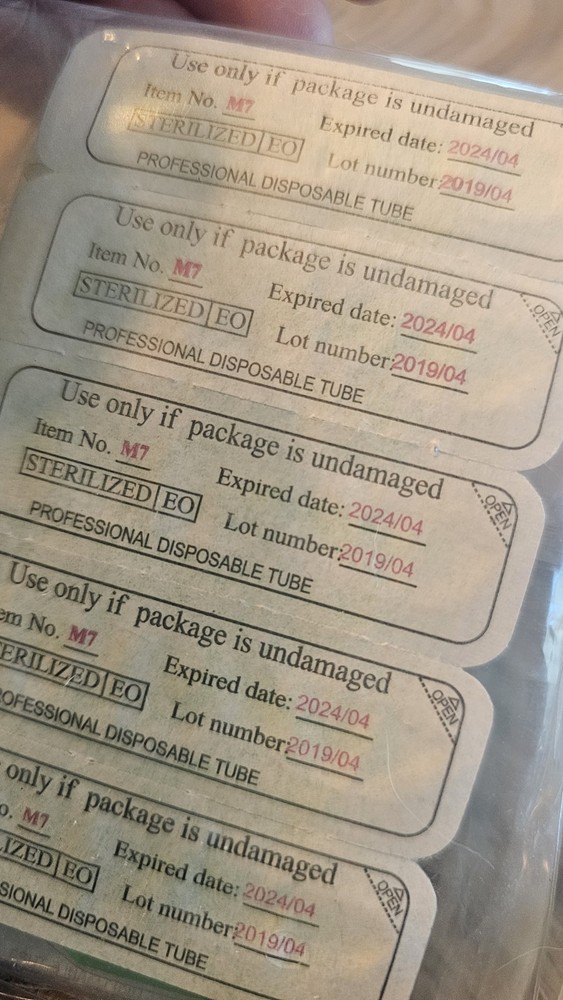 Use only if package is undamaged
Item No. M7
Expired date: 2024/04
STERILIZED EO
Lot number:2019/04
PROFESSIONAL DISPOSABLE TUBE
Use only if package is undamaged
OPEN
Item No. M7
Expired date: 2024/04
STERILIZED EO
Lot number:2019/04
PROFESSIONAL DISPOSABLE TUBE
Use only if package is undamaged
OPEN
Item No. M7
Expired date: 2024/04
STERILIZED EO
Lot number:2019/04
PROFESSIONAL DISPOSABLE TUBE
Use only if package is undamaged
OPEN
em No. M7
Expired date: 2024/04
ERILIZED EO
Lot number:2019/04
OFESSIONAL DISPOSABLE TUBE
only if package is undamaged
OPEN
o. M7
Expired date: 2024/04
IZED EO
Lot number:2019/04
SIONAL DISPOSABLE TUBE